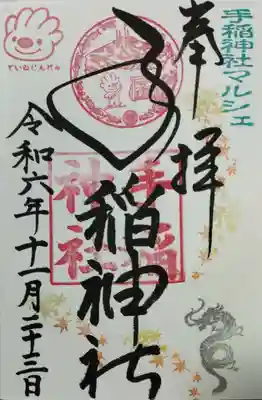 手稲神社マルシェ
奉拝
手稲神社
手稲
神社
令和六年十一月二十三日
ていねじんじゃ